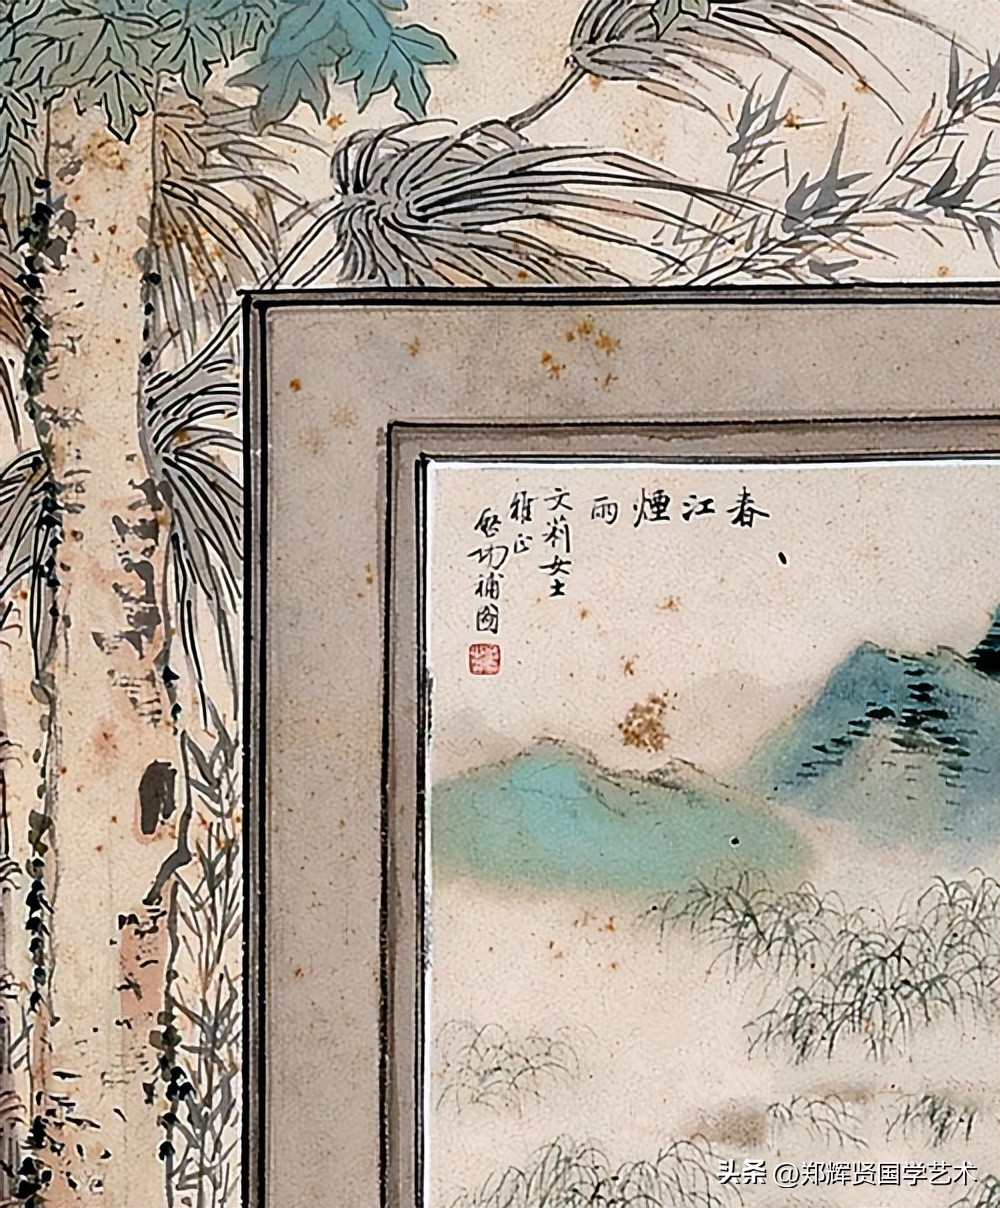 春江煙雨
文莉女士
雅正
啓功補圖
头条 @郑辉贤国学艺术